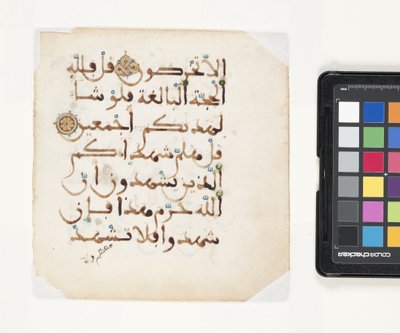 الا تخرصون قل فلله
الحجة البالغة فلو شا
لهديكم اجمعين
قل هلم شهداكم
الذين يشهدون ان
الله حرم هذا فان
شهدوا فلا تشهد
معهم ولا
colorchecker